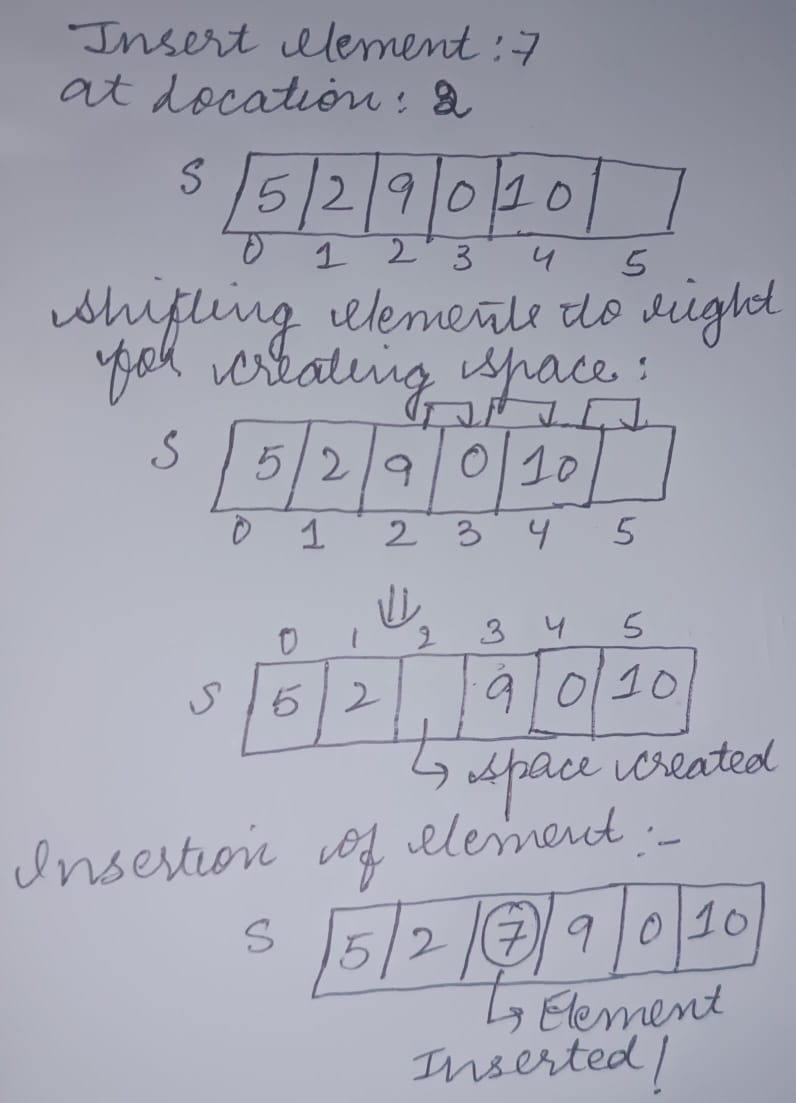 Insert element : 7
at Location : 2
S 5 2 9 0 10
0 1 2 3 4 5
Shifting elements to right
for creating space :
S 5 2 9 0 10
0 1 2 3 4 5
0 1 2 3 4 5
S 5 2 9 0 10
↳ space created
Insertion of element :-
S 5 2 7 9 0 10
↳ Element
Inserted !